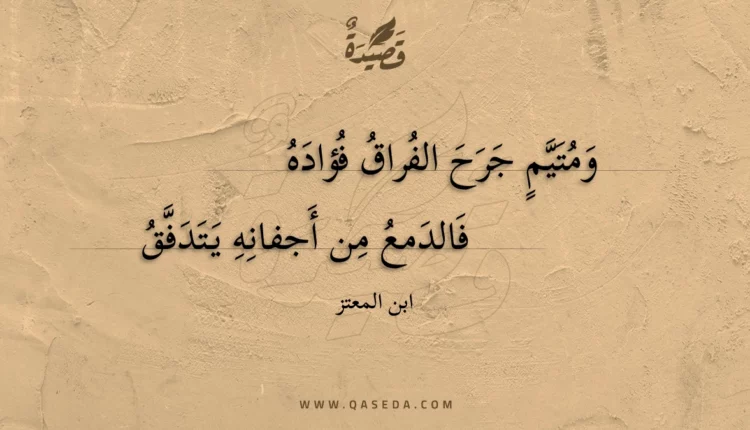 قَصِيدَةٌ
وَمُتَيَّمٍ جَرَحَ الفُراقُ فُؤادَهُ
فَالدَمعُ مِن أَجفانِهِ يَتَدَفَّقُ
ابن المعتز
WWW.QASEDA.COM